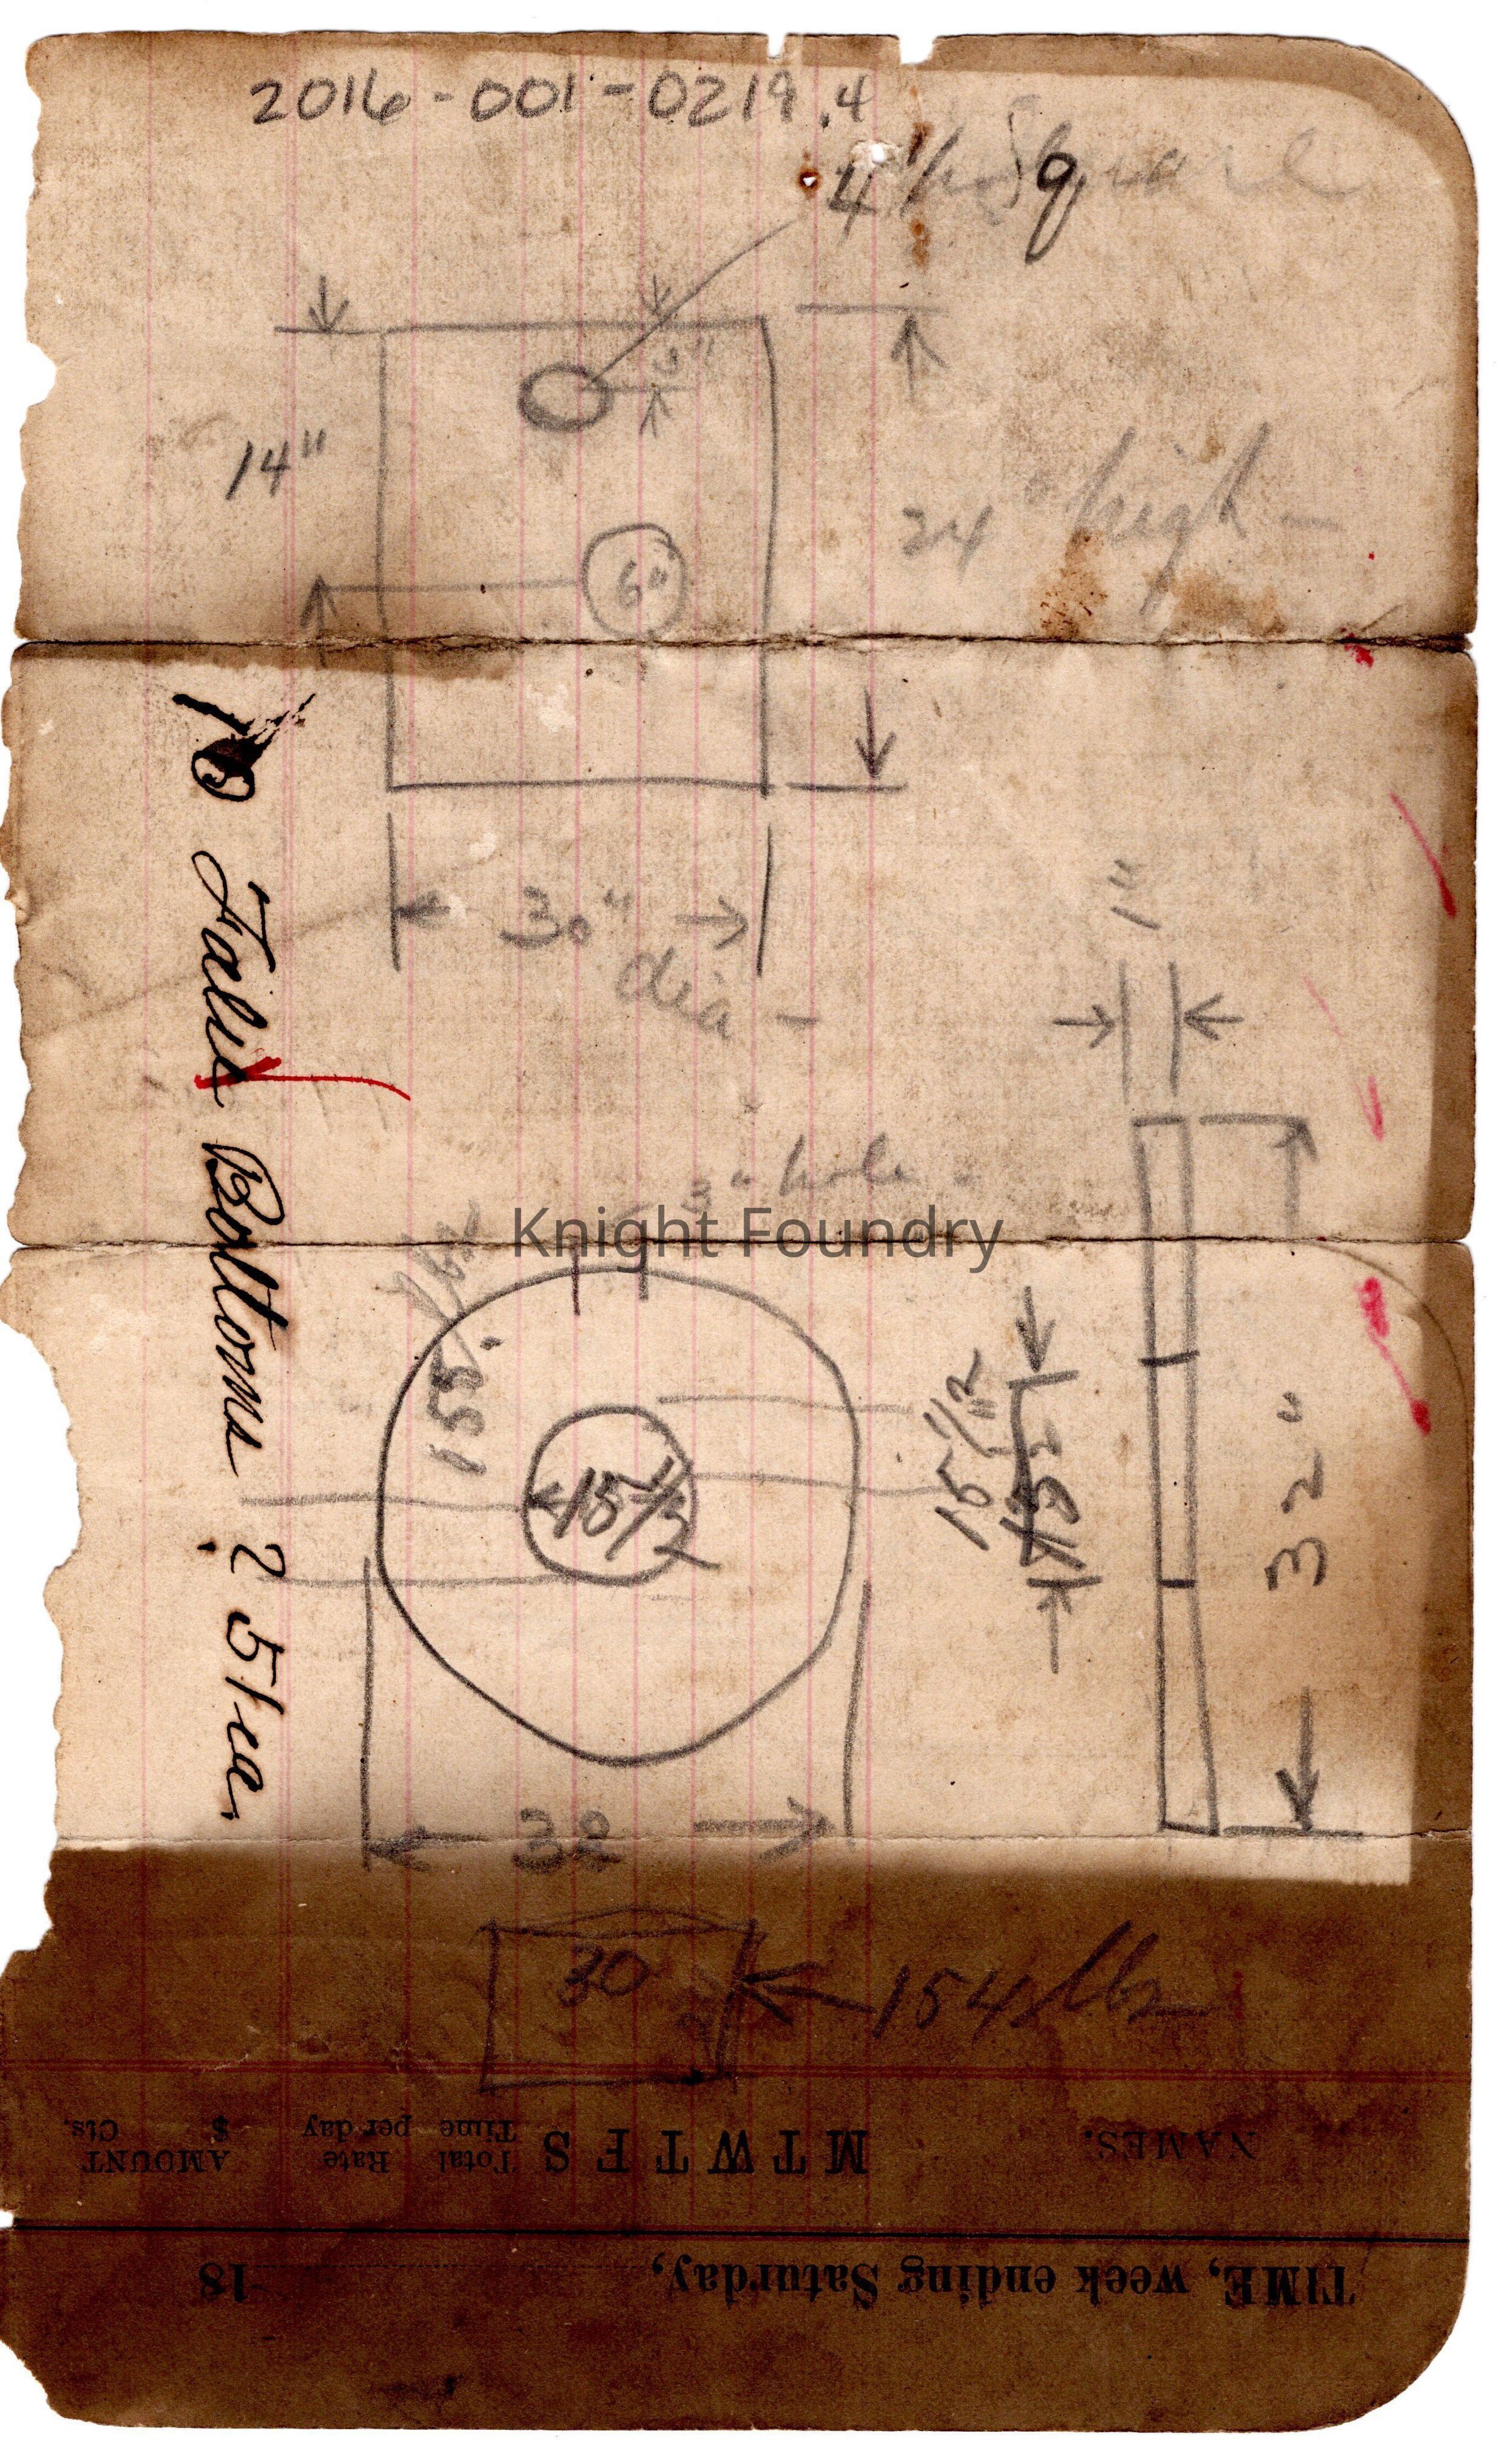 2016-001-0219.4
4 1/2 Square
6"
14"
24" high -
6"
30"
dia -
1"
3" hole -
Knight Foundry
155.
lbs
15 1/2
15 1/2
32"
32
10 False Bottoms 2 51ea.
30
154 lbs
TIME, week ending Saturday, 18
NAMES. M T W T F S Total Time Rate per day AMOUNT $ Cts.